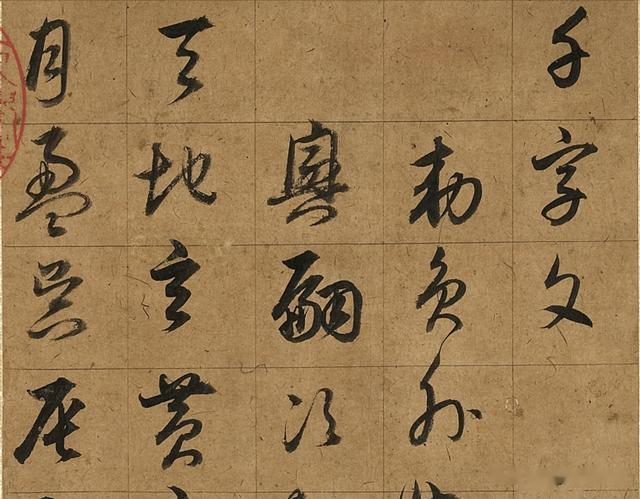 千字文
勅員外
興嗣次
天地玄黃
月盈昃辰